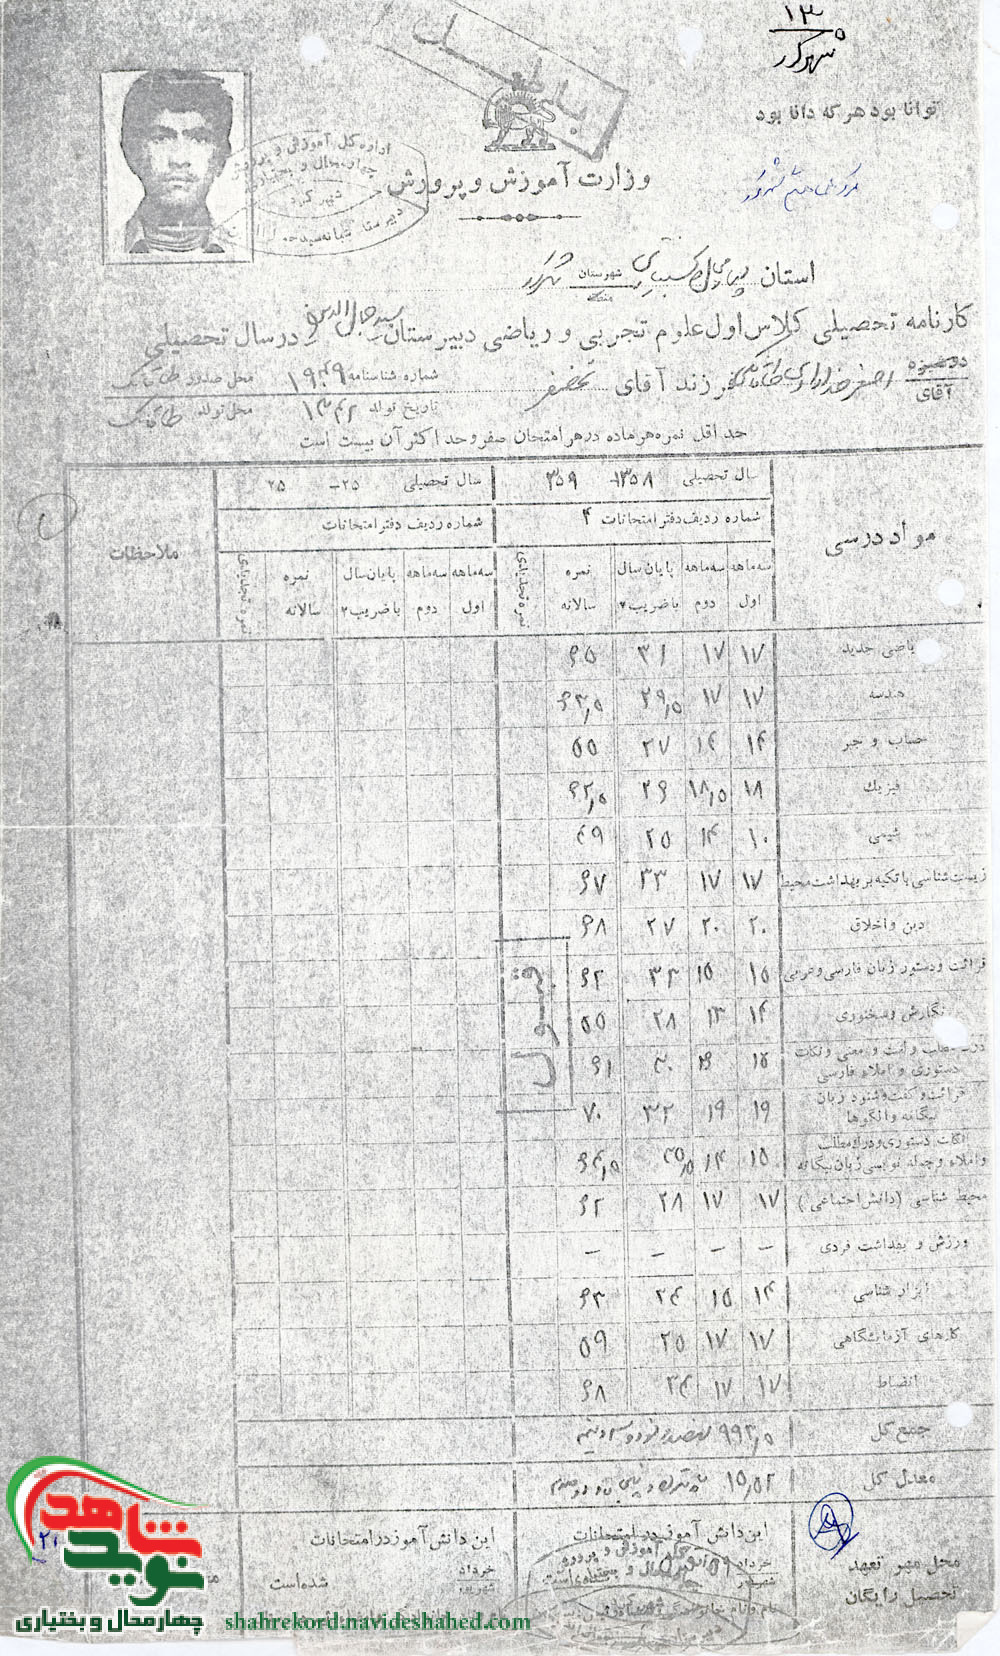 ۱۳
شهرکرد
توانا بود هر که دانا بود
باطل
وزارت آموزش و پرورش
اداره کل آموزش و پرورش
چهارمحال و بختیاری
شهرکرد
استان چهارمحال و بختیاری شهرستان شهرکرد
منطقه
کارنامه تحصیلی کلاس اول علوم تجربی و ریاضی دبیرستان سید جمال الدین در سال تحصیلی
دوشیزه
آقای
اصغر خدادادی طاقانکی فرزند آقای غضنفر
شماره شناسنامه ۱۹۴۹ محل صدور طاقانک
تاریخ تولد ۱۳۴۲ محل تولد طاقانک
حداقل نمره هر ماده در هر امتحان صفر و حداکثر آن بیست است
مواد درسی
سال تحصیلی ۱۳۵۸- ۳۵۹
سال تحصیلی ۲۵- ۲۵
ملاحظات
شماره ردیف دفتر امتحانات ۴
شماره ردیف دفتر امتحانات
سه‌ماهه اول سه‌ماهه دوم پایان سال با ضریب ۲ نمره سالانه نمره تجدیدی
سه‌ماهه اول سه‌ماهه دوم پایان سال با ضریب ۲ نمره سالانه نمره تجدیدی
ریاضی جدید ۱۷ ۱۷ ۳۱ ۶۵
هندسه ۱۷ ۱۷ ۲۹٫۵ ۶۳٫۵
حساب و جبر ۱۴ ۱۴ ۲۷ ۵۵
فیزیک ۱۸ ۱۸٫۵ ۲۶ ۶۲٫۵
شیمی ۱۰ ۱۴ ۲۵ ۴۹
زیست‌شناسی با تکیه بر بهداشت محیط ۱۷ ۱۷ ۳۳ ۶۷
دین و اخلاق ۲۰ ۲۰ ۲۷ ۶۸
قرائت و دستور زبان فارسی و عربی ۱۵ ۱۵ ۳۲ ۶۲
نگارش و سخنوری ۱۴ ۱۳ ۲۸ ۵۵
درک مطلب و لغت و معنی و نکات
دستوری و املاء فارسی ۱۵ ۳۰ ۶۱
قرائت و گفت و شنود زبان
بیگانه و الگوها ۱۹ ۱۹ ۳۲ ۷۰
نکات دستوری و درک مطلب
و املاء و جمله نویسی زبان بیگانه ۱۵ ۱۴ ۳۵٫۵ ۶۴٫۵
محیط شناسی (دانش اجتماعی) ۱۷ ۱۷ ۲۸ ۶۲
ورزش و بهداشت فردی - - - -
ابزار شناسی ۱۴ ۱۵ ۳۴ ۶۳
کارهای آزمایشگاهی ۱۷ ۱۷ ۲۵ ۵۹
انضباط ۱۷ ۱۷ ۳۴ ۶۸
قبول
جمع کل ۹۹۳٫۵ نهصد و نود و سه و نیم
معدل کل ۱۵٫۵۲
محل مهر تعهد
تحصیل رایگان
این دانش آموز در امتحانات
خرداد
شهریور
این دانش آموز در امتحانات
خرداد
شهریور
شده است
نوید شاهد
چهارمحال و بختیاری
shahrekord.navideshahed.com